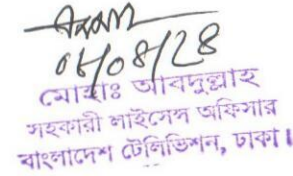 ০৮/০৪/২৪
মোহাঃ আবদুল্লাহ
সহকারী লাইসেন্স অফিসার
বাংলাদেশ টেলিভিশন, ঢাকা।